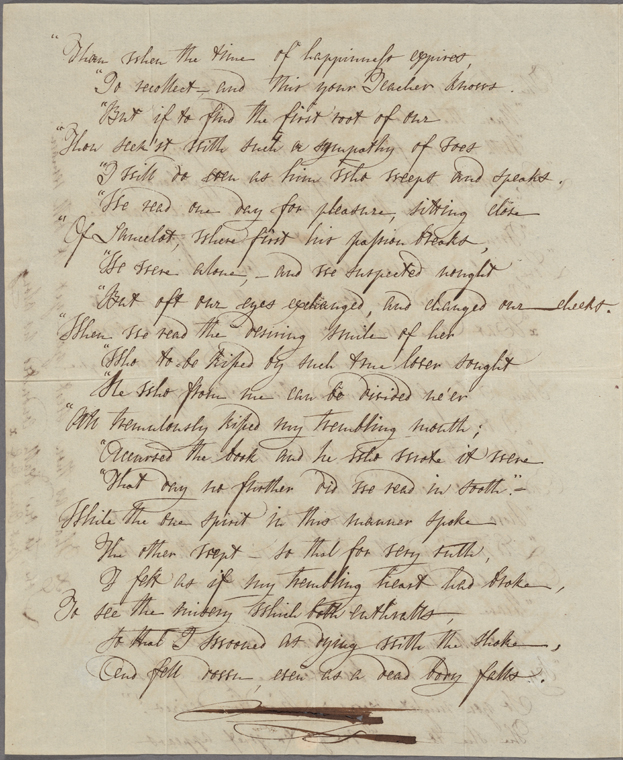 "Than when the time of happiness expires,
"To recollect — and this your Teacher knows.
"But if to find the first root of our
"Thou seek'st with such a sympathy of woes
"I will do even as him who weeps and speaks.
"We read one day for pleasure, sitting close
"Of Lancelot, where first his passion breaks,
"We were alone, — and we suspected nought
"But oft our eyes exchanged, and changed our cheeks.
"When we read the desiring smile of her
"Who to be kissed by such true lover sought
"He who from me can be divided ne'er
"All tremulously kissed my trembling mouth;
"Accursed the book and he who wrote it were
"That day no further did we read in sooth." —
While the one spirit in this manner spoke
The other wept — so that for very ruth,
I felt as if my trembling heart had broke,
To see the misery which both enthralls,
So that I swooned as dying with the stroke,
And fell down, even as a dead body falls.